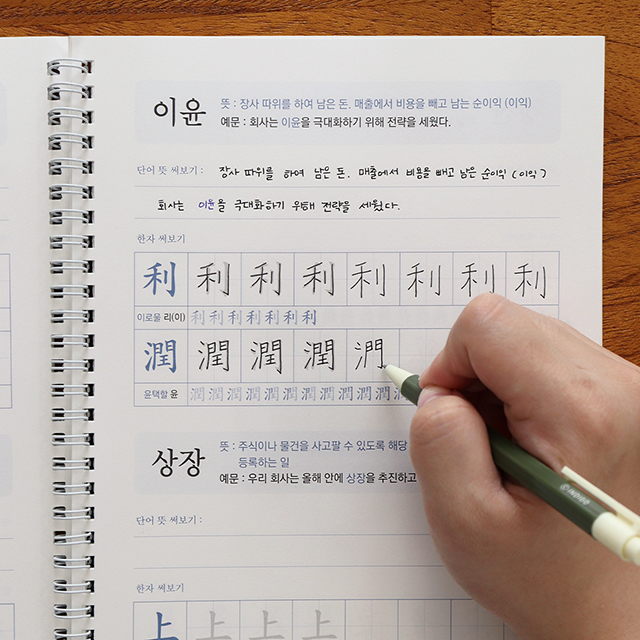 이윤
뜻 : 장사 따위를 하여 남은 돈. 매출에서 비용을 빼고 남는 순이익 (이익)
예문 : 회사는 이윤을 극대화하기 위해 전략을 세웠다.
단어 뜻 써보기 : 장사 따위를 하여 남은 돈. 매출에서 비용을 빼고 남은 순이익 (이익)
회사는 이윤을 극대화하기 위해 전략을 세웠다.
한자 써보기
利 利 利 利 利 利 利 利
이로울 리(이) 利 利 利 利 利 利 利
潤 潤 潤 潤
윤택할 윤 潤 潤 潤 潤 潤 潤 潤 潤 潤 潤 潤 潤
상장
뜻 : 주식이나 물건을 사고팔 수 있도록 해당
등록하는 일
예문 : 우리 회사는 올해 안에 상장을 추진하고
단어 뜻 써보기 :
한자 써보기
上 上 上 上